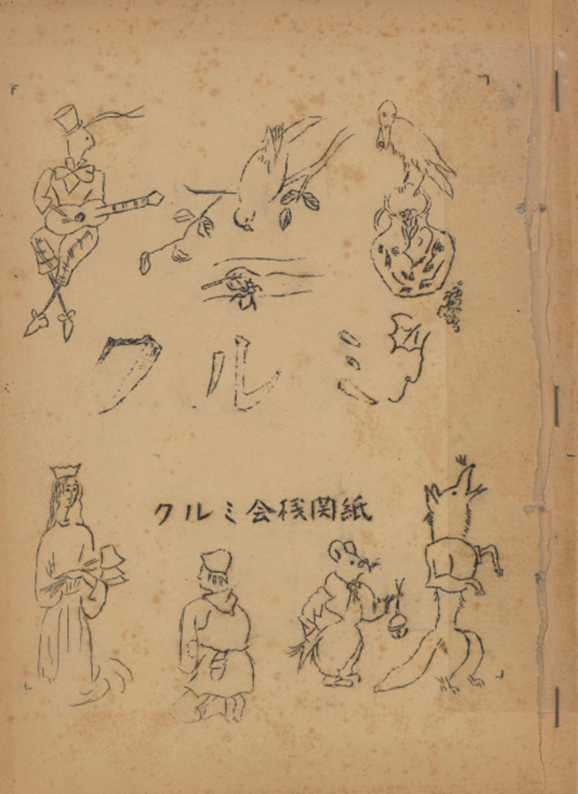 クルミ
クルミ会機関紙